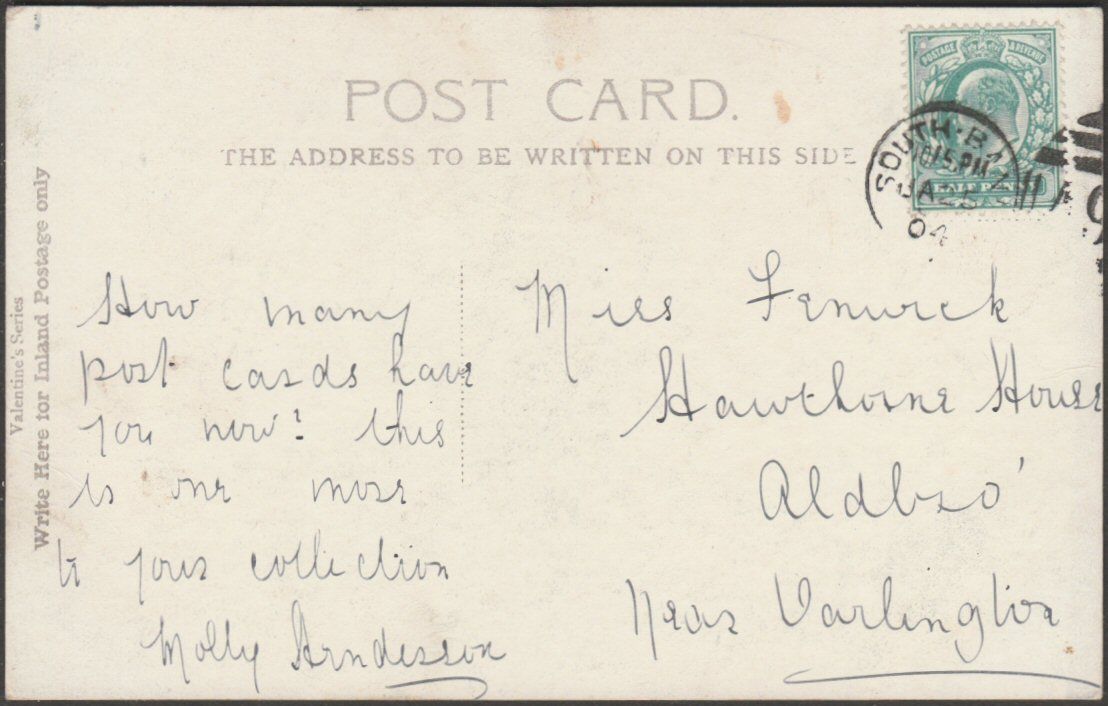 POST CARD.
THE ADDRESS TO BE WRITTEN ON THIS SIDE
POSTAGE & REVENUE
HALF PENNY
SOUTH-B
10 15 PM
JA 25
04
Valentine's Series
Write Here for Inland Postage only
How many
post cards have
you now? this
is one more
to your collection
Molly
Miss Fenwick
Hawthorne House
Aldbro'
Near Darlington